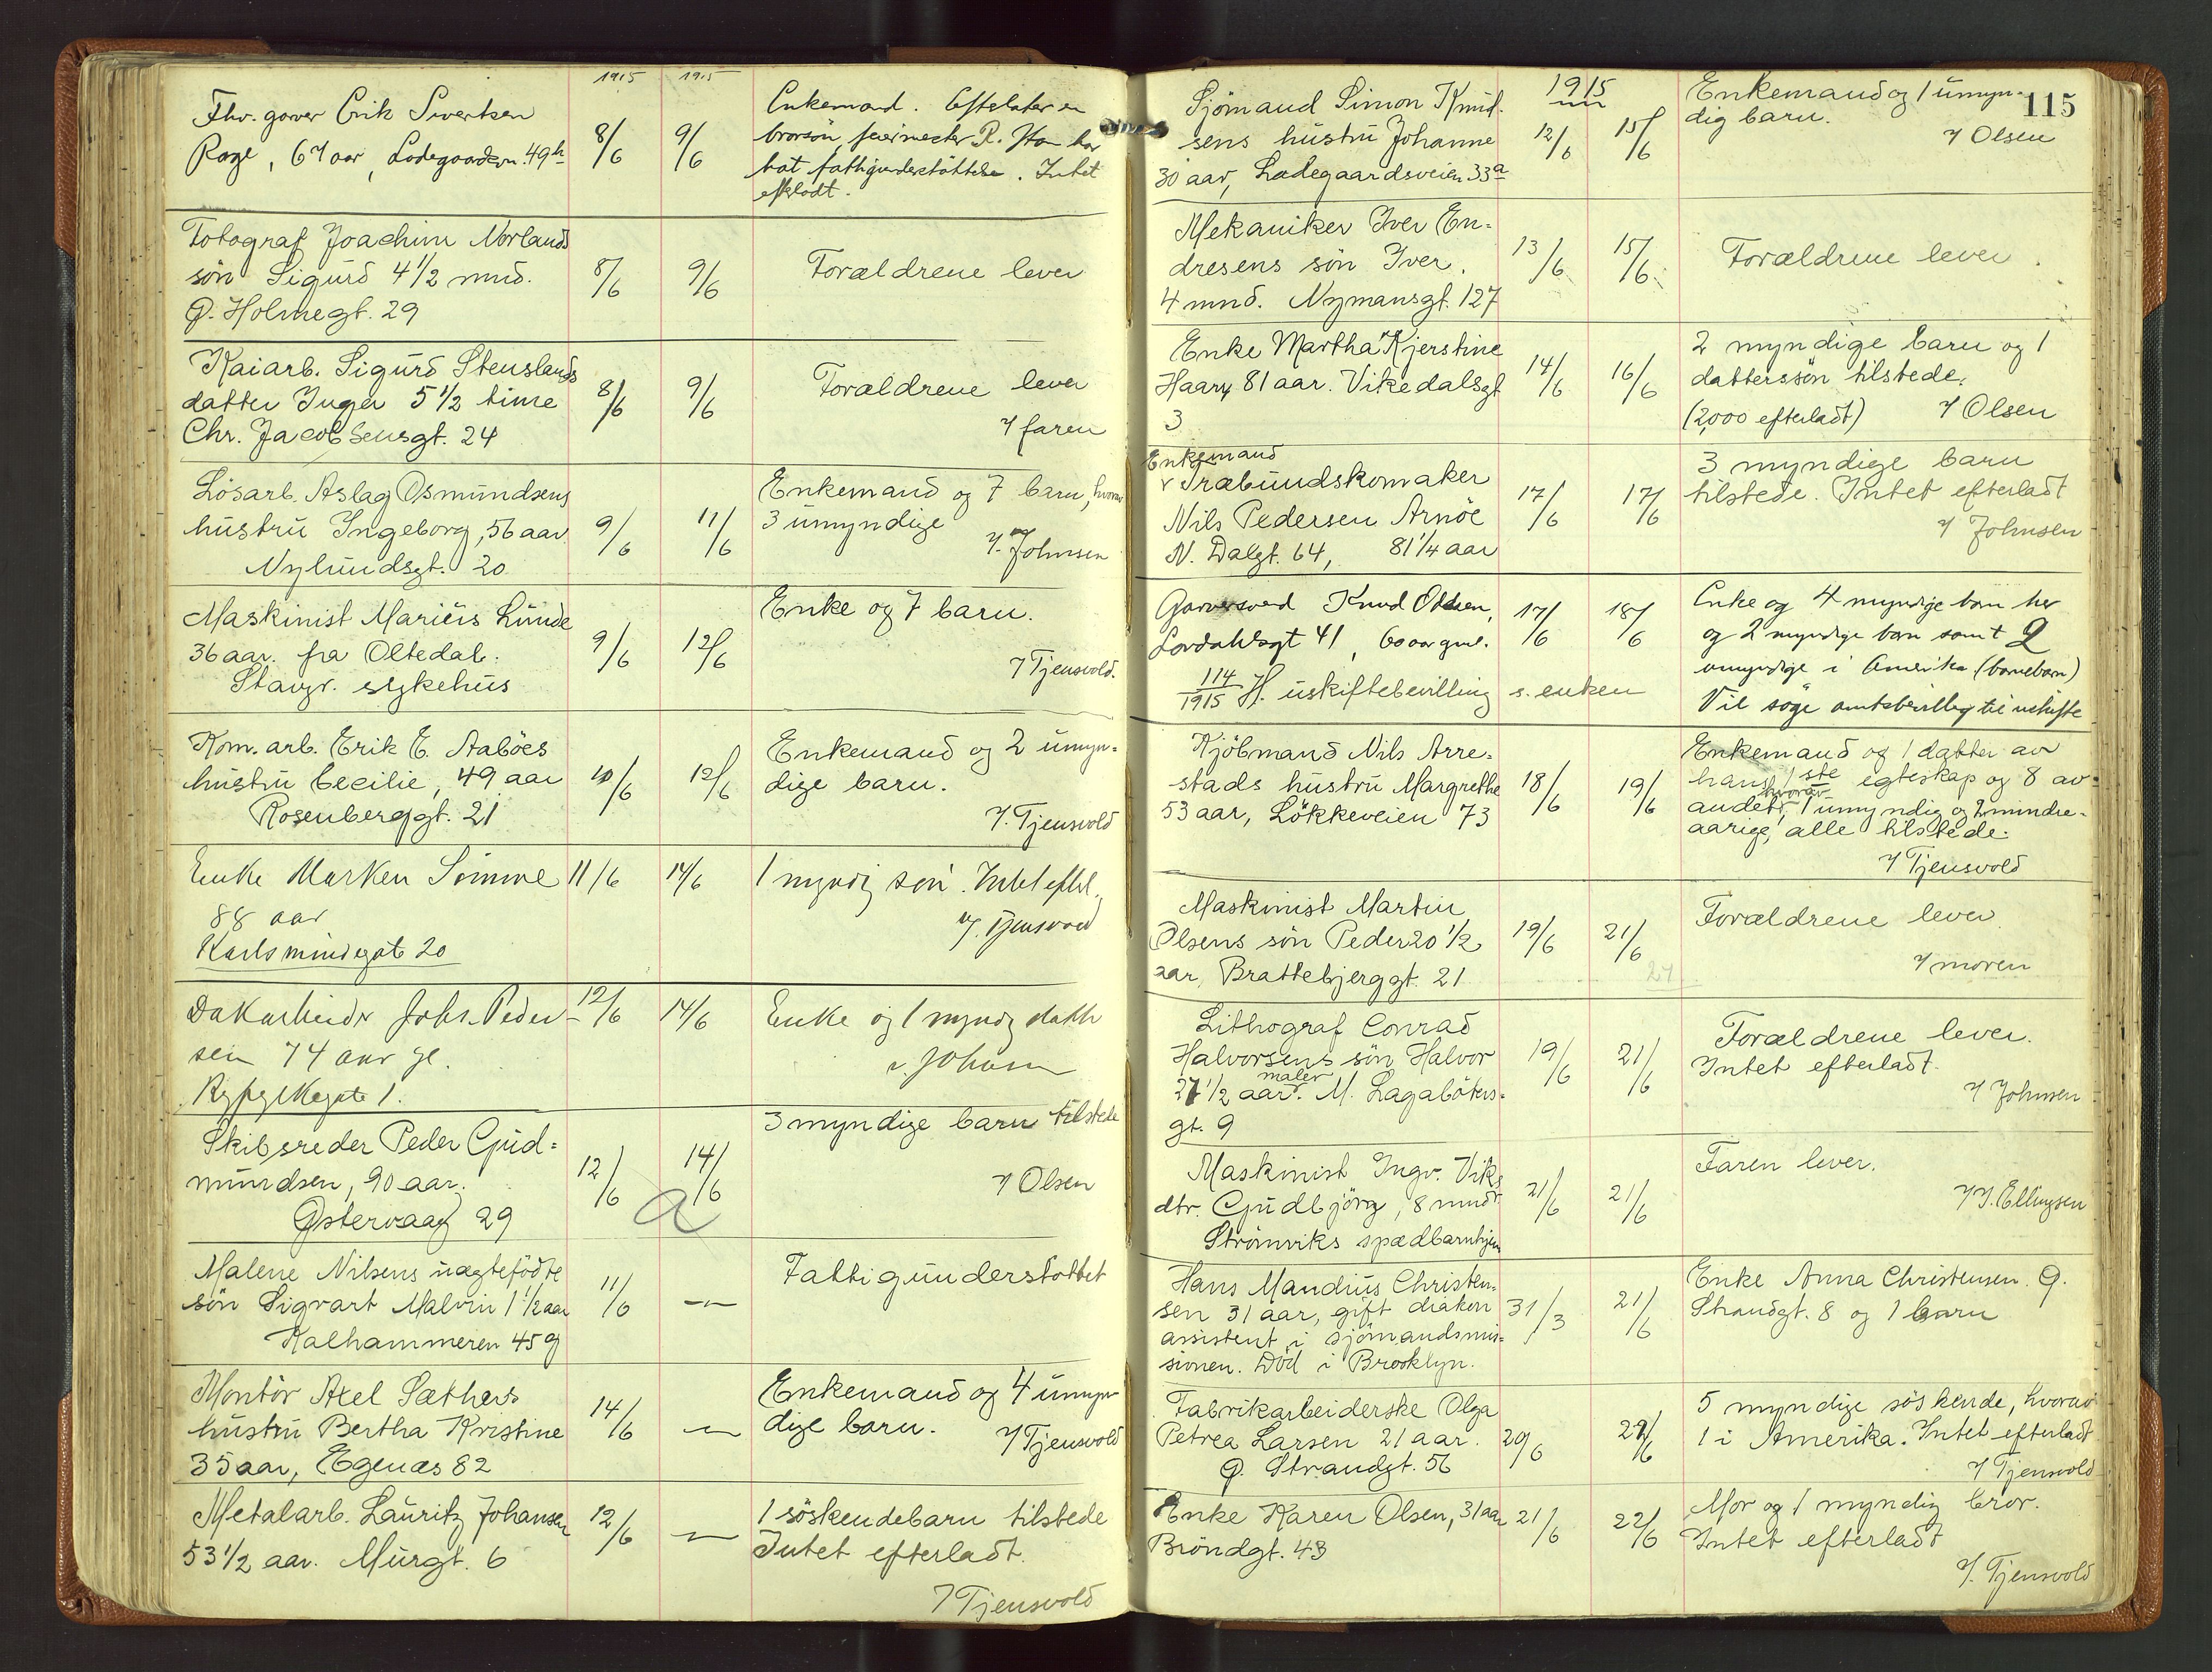 1915 1915
Fhv. garver Erik Sivertsen
Rage, 67 aar, Ladegaardsvn. 49b
8/6 9/6
Enkemand. Efterlater en
brorsøn, feiermester R. Han har
hat fattigunderstøttelse. Intet
efterladt.
Fotograf Joachim Norlands
søn Sigurd 4 1/2 mnd.
Ø. Holmegt. 29
8/6 9/6
Forældrene lever
Kaiarb. Sigurd Stenslands
datter Inger 5 1/2 time
Chr. Jacobsensgt. 24
8/6 9/6
Forældrene lever
v/ faren
Løsarb. Aslag Osmundsens
hustru Ingeborg, 56 aar
Nylundsgt. 20
9/6 11/6
Enkemand og 7 barn, hvorav
3 umyndige
v/ Johnsen
Maskinist Marius Lunde
36 aar. fra Oltedal.
Stavgr. sykehus
9/6 12/6
Enke og 7 barn.
v/ Tjensvold.
Kom. arb. Erik E. Aabøes
hustru Cecilie, 49 aar
Rosenberggt. 21
10/6 12/6
Enkemand og 2 umyn-
dige barn.
v/ Tjensvold
Enke Marken Sømme
88 aar
Karlsmindegate 20
11/6 14/6
1 myndig søn. Intet efterl.
v/ Tjensvold
Dakarbeider Johs. Peder-
sen 74 aar gl.
Ryfylkegate 1.
12/6 14/6
Enke og 1 myndig datter
v. Johnsen
Skibsreder Peder Gud-
mundsen, 90 aar.
Østervaag 29
12/6 14/6
a
3 myndige barn tilstede
v/ Olsen
Malene Nilsens uægtefødte
søn Sigvart Malvin 1 1/2 aar
Kalhammeren 45 g
11/6 —
Fattigunderstøttet
Montør Axel Sæthers
hustru Bertha Kristine
35 aar, Egenæs 82
14/6 —
Enkemand og 4 umyn-
dige barn.
v/ Tjensvold
Metalarb. Lauritz Johansen
53 1/2 aar. Murgt. 6
12/6 —
1 søskendebarn tilstede
Intet efterladt.
v/ Tjensvold
115
1915
Sjömand Simon Knud-
sens hustru Johanne
30 aar, Ladegaardsveien 33a
12/6 15/6
Enkemand og 1 umyn-
dig barn.
v/ Olsen
Mekaniker Iver En-
dresens søn Iver.
4 mnd. Nymansgt. 127
13/6 15/6
Forældrene lever.
Enke Martha Kjerstine
Haary 81 aar. Vikedalsgt
3
14/6 16/6
2 myndige barn og 1
datterssøn tilstede.
(2,000 efterladt) v/ Olsen
Enkemand
v Træbundskomaker
Nils Pedersen Arnøe
N. Dalgt. 64, 81 1/4 aar
17/6 17/6
3 myndige barn
tilstede. Intet efterladt
v/ Johnsen
Garversvend Knud Olsen,
Lordahlsgt 41, 60 aar gml.
114/1915 H. uskiftebevilling s. enken
17/6 18/6
Enke og 4 myndige barn her
og 2 myndige barn samt 2
umyndige i Amerika (barnebarn)
Vil søge amtsbevilling til uskifte
Kjøbmand Nils Arre-
stads hustru Margrethe
53 aar, Løkkeveien 73
18/6 19/6
Enkemand og 1 datter av
hans 1ste egteskap og 8 av
andet, hvorav 1 umyndig og 2 mindre-
aarige, alle tilstede.
v/ Tjensvold
Maskinist Martin
Olsens søn Peder 20 1/2
aar, Brattebjerggt. 21
19/6 21/6
21
Forældrene lever
v/ moren
Lithograf Conrad
Halvorsens søn Halvor
maler
27 1/2 aar. M. Lagabøters-
gt. 9
19/6 21/6
Forældrene lever.
Intet efterladt.
v/ Johnsen
Maskinist Ingv. Viks
dtr. Gudbjörg, 8 mndr
Strømviks spædbarnhjem
21/6 21/6
Faren lever.
v/ J. Ellingsen
Hans Mandius Christen-
sen 31 aar, gift diakon
assistent i sjømandsmis-
sionen. Död i Brooklyn.
31/3 21/6
Enke Anna Christensen. Ø.
Strandgt. 8 og 1 barn
Fabrikarbeiderske Olga
Petrea Larsen 21 aar.
Ø. Strandgt. 56
20/6 22/6
5 myndige søskende, hvorav
1 i Amerika. Intet efterladt
v/ Tjensvold
Enke Karen Olsen, 31 aar
Brøndgt. 43
21/6 22/6
Mor og 1 myndig bror.
Intet efterladt
v/ Tjensvold